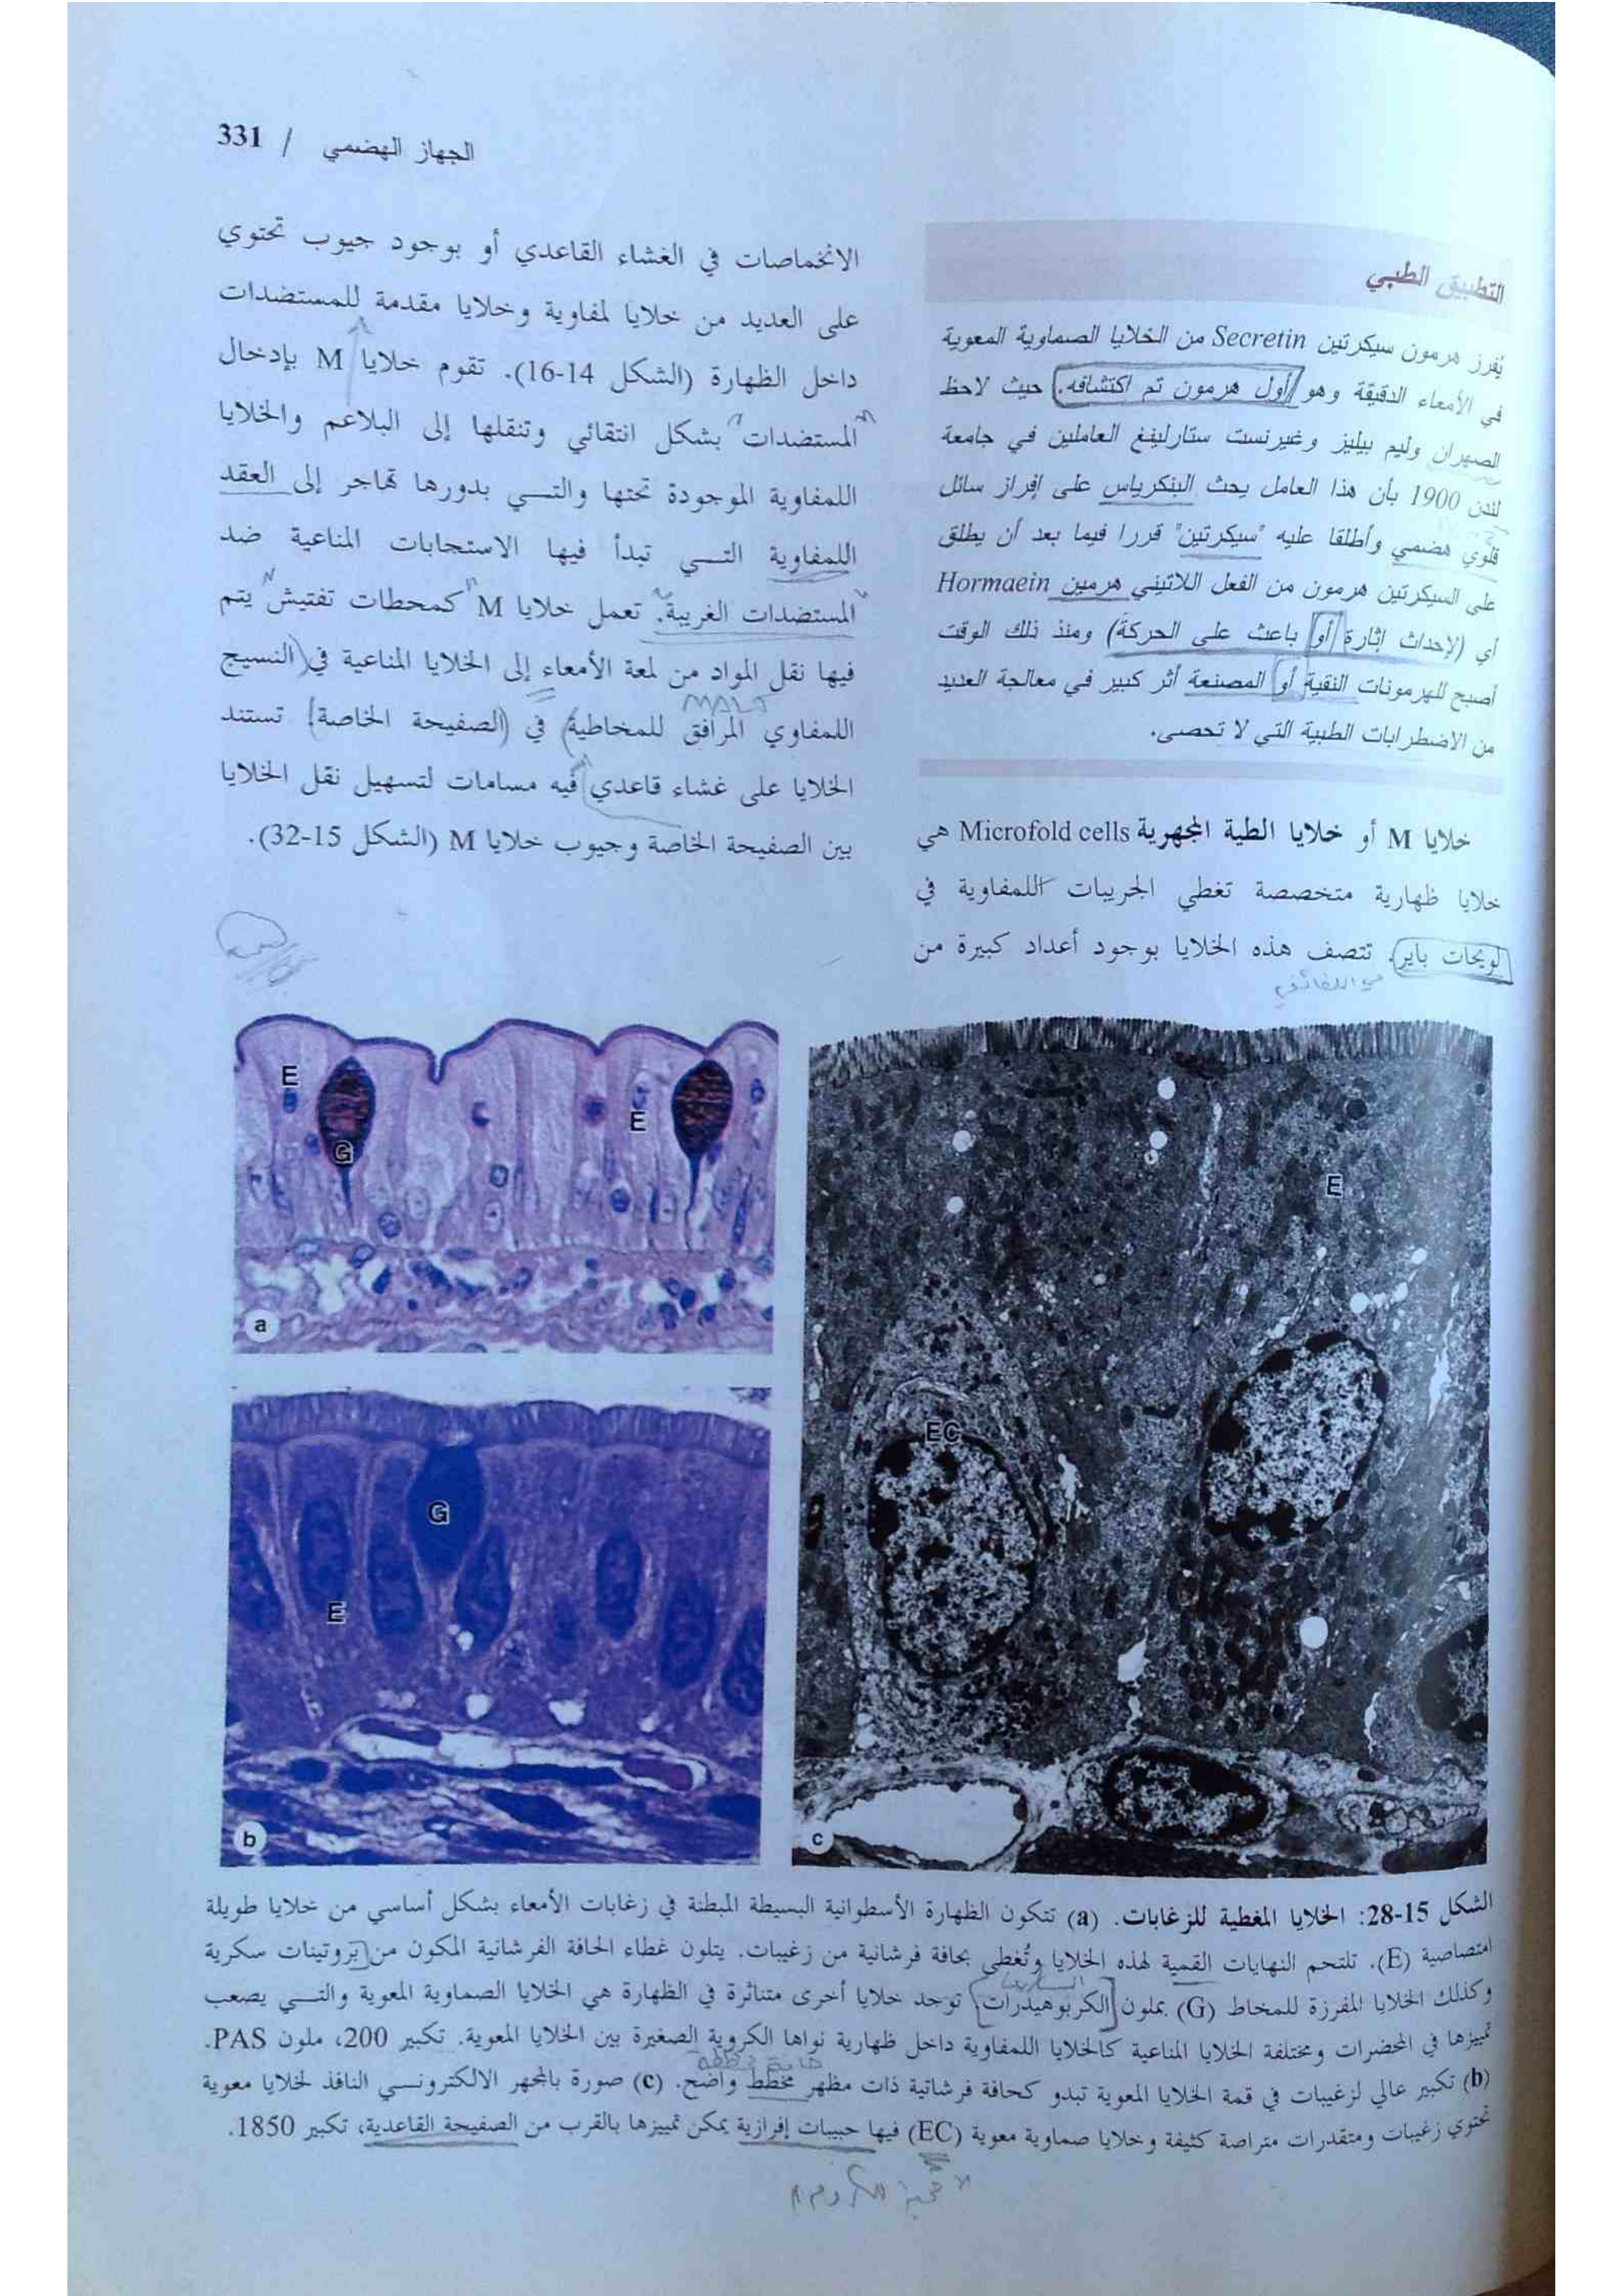 331 / الجهاز الهضمي
التطبيق الطبي
يُفرز هرمون سيكرتين Secretin من الخلايا الصماوية المعوية
في الأمعاء الدقيقة وهو أول هرمون تم اكتشافه. حيث لاحظ
الصهران وليم بيليز وغيرنست ستارلينغ العاملين في جامعة
لندن 1900 بأن هذا العامل يحث البنكرياس على إفراز سائل
قلوي هضمي وأطلقا عليه "سيكرتين" قررا فيما بعد أن يطلق
على السيكرتين هرمون من الفعل اللاتيني هرمين Hormaein
أي (لإحداث إثارة أو باعث على الحركة) ومنذ ذلك الوقت
أصبح للهرمونات النقية أو المصنعة أثر كبير في معالجة العديد
من الاضطرابات الطبية التي لا تحصى.
خلايا M أو خلايا الطية المجهرية Microfold cells هي
خلايا ظهارية متخصصة تغطي الجريبات اللمفاوية في
لويحات باير. تتصف هذه الخلايا بوجود أعداد كبيرة من
في اللفائفي
الانخماصات في الغشاء القاعدي أو بوجود جيوب تحتوي
على العديد من خلايا لمفاوية وخلايا مقدمة للمستضدات
داخل الظهارة (الشكل 14-16). تقوم خلايا M بإدخال
المستضدات بشكل انتقائي وتنقلها إلى البلاعم والخلايا
اللمفاوية الموجودة تحتها والتي بدورها تهاجر إلى العقد
اللمفاوية التي تبدأ فيها الاستجابات المناعية ضد
المستضدات الغريبة. تعمل خلايا M كمحطات تفتيش يتم
فيها نقل المواد من لمعة الأمعاء إلى الخلايا المناعية في (النسيج
MALT
اللمفاوي المرافق للمخاطية) في (الصفيحة الخاصة) تستند
الخلايا على غشاء قاعدي فيه مسامات لتسهيل نقل الخلايا
بين الصفيحة الخاصة وجيوب خلايا M (الشكل 15-32).
E
G
E
a
G
E
b
E
EC
c
الشكل 15-28: الخلايا المغطية للزغابات. (a) تتكون الظهارة الأسطوانية البسيطة المبطنة في زغابات الأمعاء بشكل أساسي من خلايا طويلة
امتصاصية (E). تلتحم النهايات القمية لهذه الخلايا وتُغطى بحافة فرشانية من زغيبات. يتلون غطاء الحافة الفرشانية المكون من بروتينات سكرية
وكذلك الخلايا المفرزة للمخاط (G) بملون الكربوهيدرات توجد خلايا أخرى متناثرة في الظهارة هي الخلايا الصماوية المعوية والتي يصعب
تمييزها في المحضرات ومختلفة الخلايا المناعية كالخلايا اللمفاوية داخل ظهارية نواها الكروية الصغيرة بين الخلايا المعوية. تكبير 200، ملون PAS.
(b) تكبير عالي لزغيبات في قمة الخلايا المعوية تبدو كحافة فرشاتية ذات مظهر مخطط واضح. (c) صورة بالمجهر الالكتروني النافذ لخلايا معوية
تحتوي زغيبات ومتقدرات متراصة كثيفة وخلايا صماوية معوية (EC) فيها حبيبات إفرازية يمكن تمييزها بالقرب من الصفيحة القاعدية، تكبير 1850.